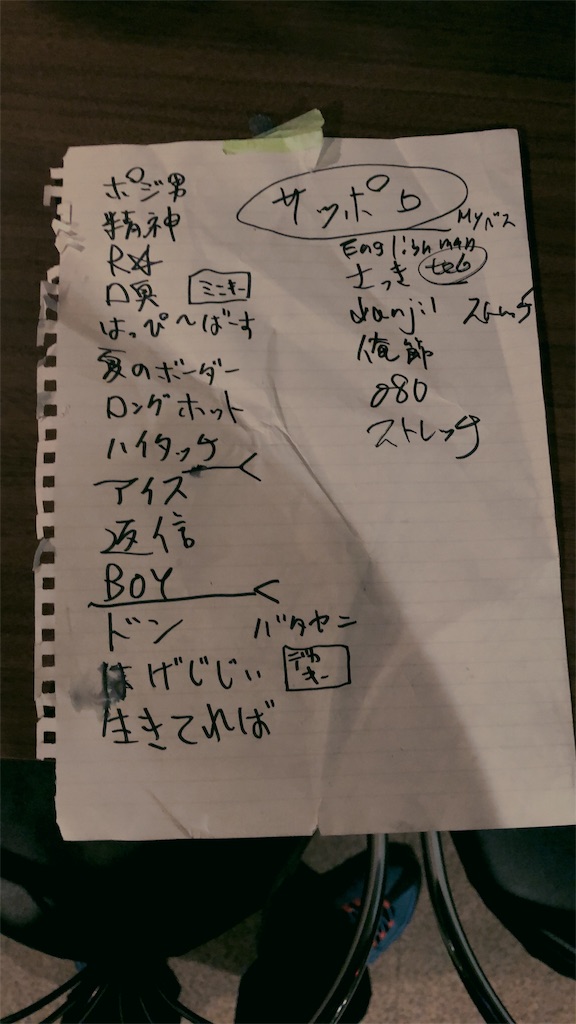 ポジ男
精神
ミニキー
はっぴ〜ばーす
夏のボーダー
ロングホット
ハイタッチ
アイス
返信
BOY
ドン バタヤン
はげじじぃ デカキー
生きてれば
サッポロ
Myバス
Englishman
さっき
ストレッチ
俺節
080
ストレッチ